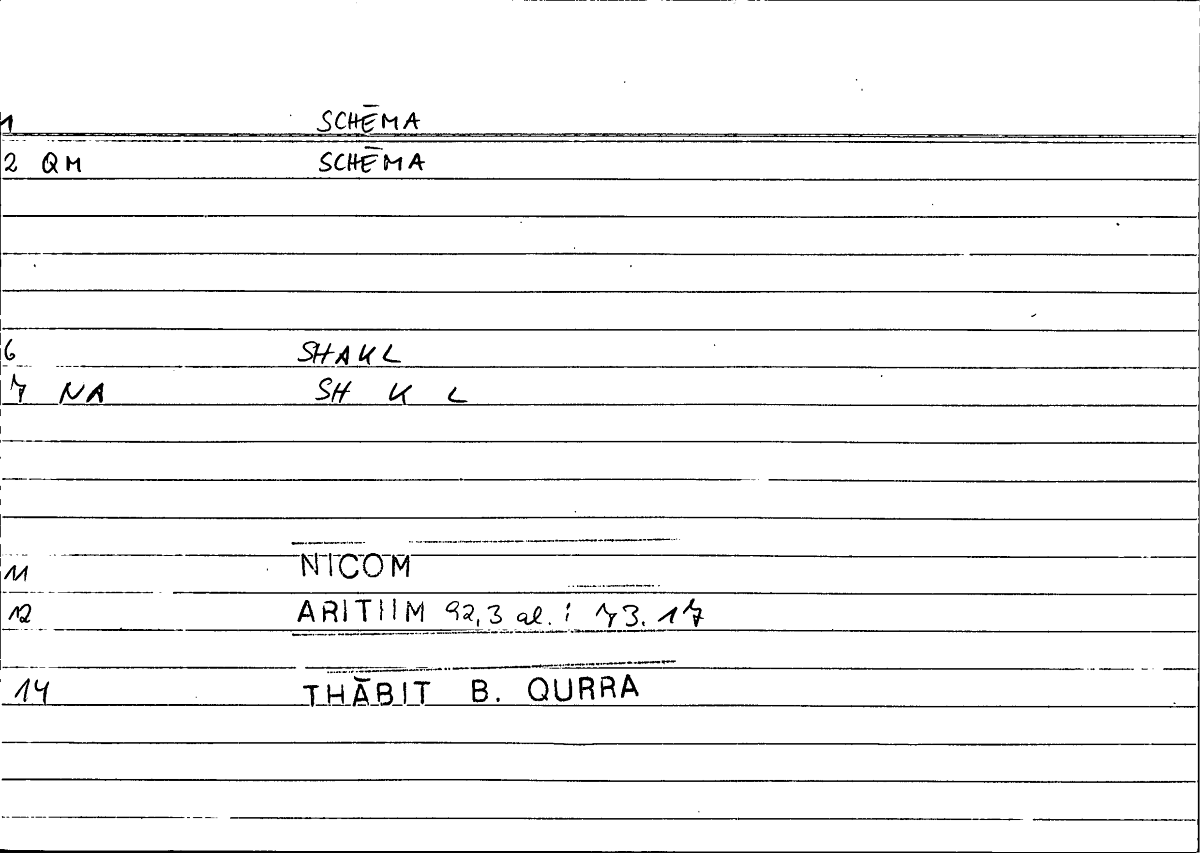 1 SCHĒMA
2 QM SCHĒMA
6 SHAKL
7 NA SH K L
11 NICOM
12 ARITIIM 92,3 al. ; 73.17
14 THĀBIT B. QURRA